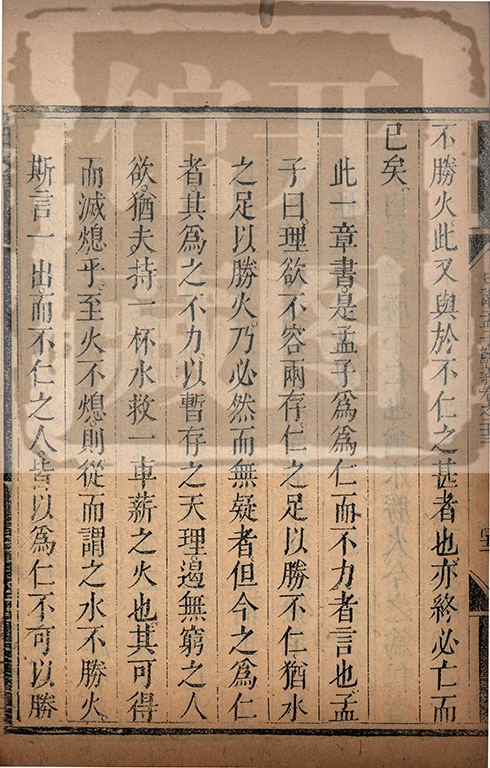 不勝火此又與於不仁之甚者也亦終必亡而
已矣
此一章書是孟子為為仁而不力者言也孟
子曰理欲不容兩存仁之足以勝不仁猶水
之足以勝火乃必然而無疑者但今之為仁
者其為之不力以暫存之天理遏無窮之人
欲猶夫持一杯水救一車薪之火也其可得
而滅熄乎至火不熄則從而謂之水不勝火
斯言一出而不仁之人皆以為仁不可以勝